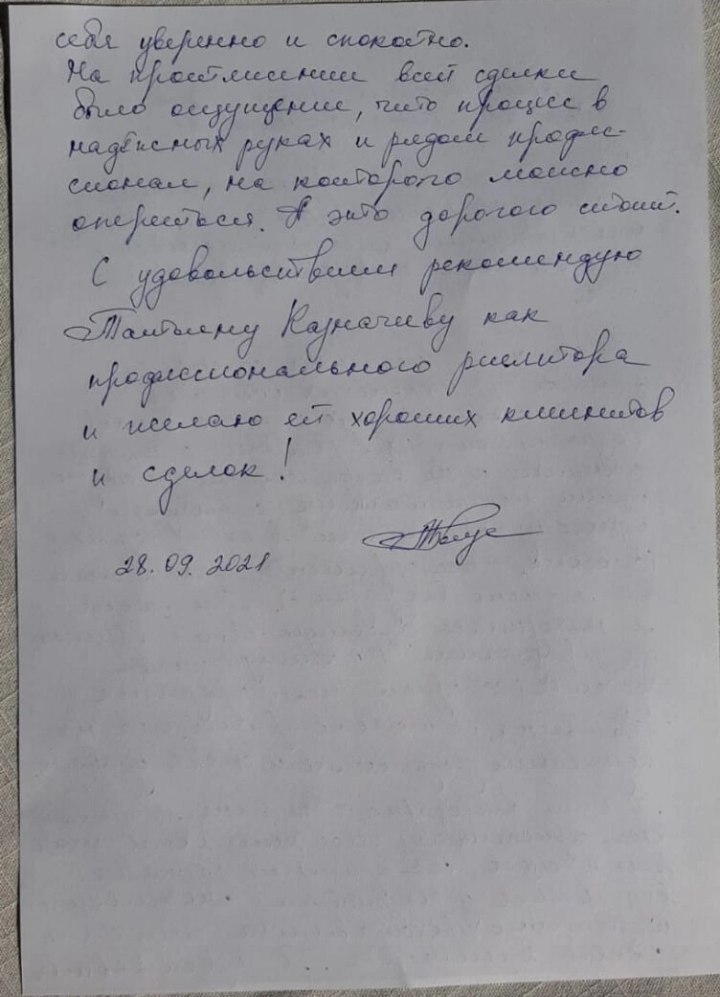 себя уверенно и спокойно.
На протяжении всей сделки
было ощущение, что процесс в
надёжных руках и рядом профес-
сионал, на которого можно
опереться. А это дорогого стоит.
С удовольствием рекомендую
Татьяну Казначееву как
профессионального риелтора
и желаю ей хороших клиентов
и сделок!
28.09.2021